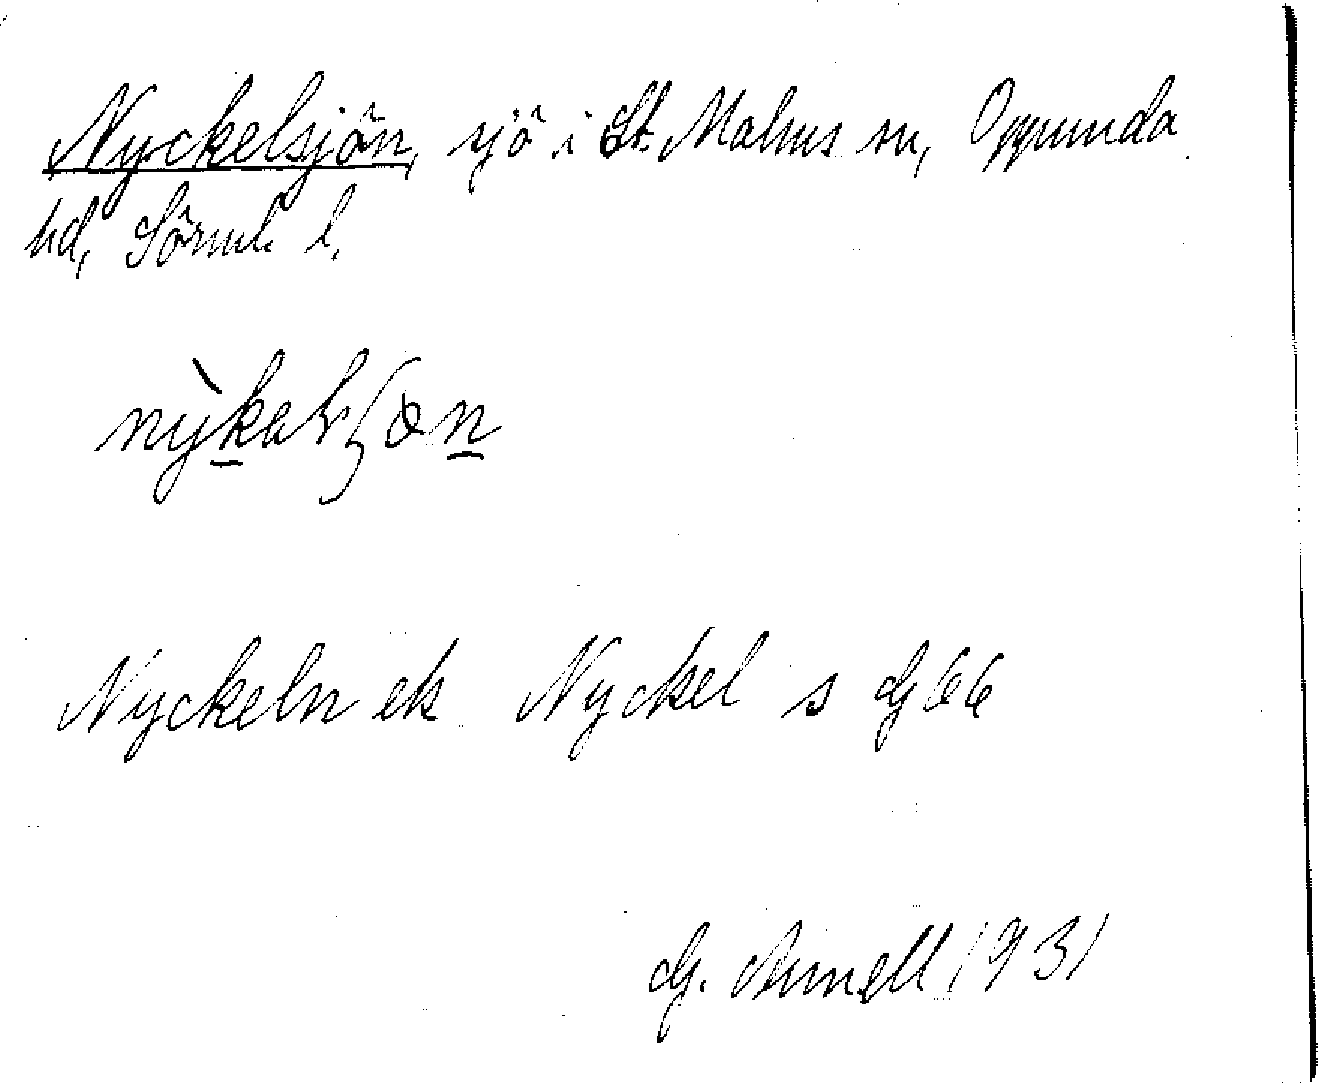 Nyckelsjön, sjö i St. Malms sn, Oppunda
hd, Sörml. l.
Nyckeln ek Nyckel s G 66
G. Arnell 1931